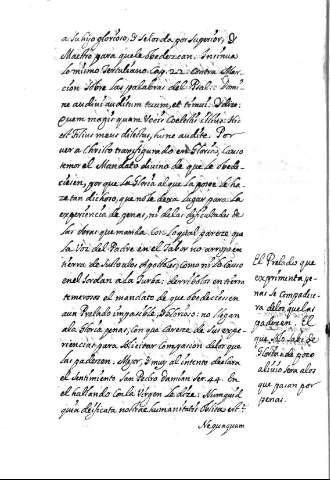 a su hijo glorioso, y se lo da por Superior, y
Maestro para que le obedezcan. Insinua
lo mismo Tertuliano Cap. 22. contra Mar-
cion sobre las palabras del Psalm. Domi-
ne audivi auditum tuum, et timui. y dice:
quem magis quam Vocis Coelestis illius: Hic
est Filius meus dilectus, hunc audite. Por
ver a Christo transfigurado en Gloria, causo
temor el Mandato divino de que le obede-
ciesen, por que la Gloria al que la posee le ha-
ze tan dichoso, que no le dexa lugar para la
experiencia de penas, ni de las dificultades de
las obras que manda. Con lo qual parece que
la Voz del Padre en el Tabor no arrojo en
tierra de susto a los Apostoles, como ni la causo
en el Jordan a la Turba: derribolos en tierra
temerosos el mandato de que obedeciesen
a un Prelado impasible, y glorioso: no llegan
a la Gloria penas, con que carece de sus expe-
riencias para solicitar compasion de los que
las padecen. Mejor, y muy al intento declara
el sentimiento San Pedro Damian Ser. 44. En
el hablando con la Virgen le dice: Numquid
quia deificata nostrae humanitatis oblita est?
Nequaquam
El Prelado que
experimenta pe-
nas se compadece-
ra de los que las
padecen. El
que solo sabe de
Gloria da poco
alivio sera a los
que pasan por
penas.